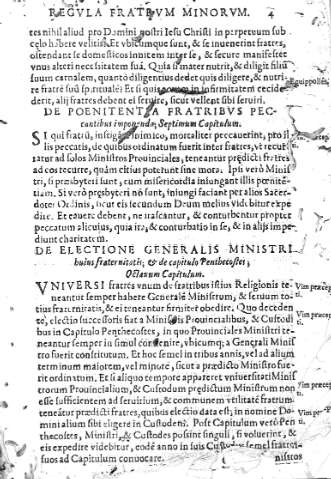 REGVLA FRATRVM MINORVM. 4
tes nihil aliud pro Domini nostri Iesu Christi in perpetuum sub
cęlo habere velitis. Et vbicumque sunt, & se inuenerint fratres,
ostendant se domesticos inuicem inter se, & secure manifestet
vnus alteri necessitatem suā. Quia si mater nutrit, & diligit filiū
suum carnalem, quanto diligentius debet quis diligere, & nutri-
re fratrē suū spiritualē? Et si quis eorum in infirmitatem cecide-
rit, alij fratres debent ei seruire, sicut vellent sibi seruiri.
Equippollēs
DE POENITENTIA FRATRIBVS PEC-
cantibus imponenda, Septimum Capitulum.
SI qui fratrū, instigante inimico, mortaliter peccauerint, pro il-
lis peccatis, de quibus ordinatum fuerit inter fratres, vt recur-
ratur ad solos Ministros Prouinciales, teneantur prędicti fratres
ad eos recurrere, quàm citius poterunt sine mora. Ipsi verò Mini-
stri, si presbyteri sunt, cum misericordia iniungant illis peniten-
tiam. Si verò presbyteri nō sunt, iniungi faciant per alios Sacer-
dotes Ordinis, sicut eis secundum Deum melius videbitur expe-
dire. Et cauere debent, ne irascantur, & conturbentur propter
peccatum alicuius, quia ira, & conturbatio in se, & in alijs impe-
diunt charitatem.
DE ELECTIONE GENERALIS MINISTRI
huius fraternitatis, & de capitulo Penthecostes,
Octauum Capitulum.
VNIVERSI fratres vnum de fratribus istius Religionis te-
neantur semper habere Generalē Ministrum, & seruum to-
tius fraternitatis, & ei teneantur firmiter obedire. Quo deceden-
te, electio successoris fiat a Ministris Prouincialibus, & Custodi-
bus in Capitulo Penthecostes, in quo Prouinciales Ministri te-
neantur semper in simul conuenire, vbicumque a Generali Mini-
stro fuerit constitutum. Et hoc semel in tribus annis, vel ad alium
terminum maiorem, vel minorē, sicut a prædicto Ministro fue-
rit ordinatum. Et si aliquo tempore appareret vniuersitati Mini-
strorum Prouincialium, & Custodum prædictum Ministrum non
esse sufficientem ad seruitium, & communem vtilitatē fratrum:
teneātur prædicti fratres, quibus electio data est, in nomine Do-
mini alium sibi eligere in Custodem. Post Capitulum verò Pen-
thecostes, Ministri, & Custodes possint singuli, si voluerint, &
eis expedire videbitur, eodē anno in suis Custodijs semel fratres
suos ad Capitulum conuocare.
nistros